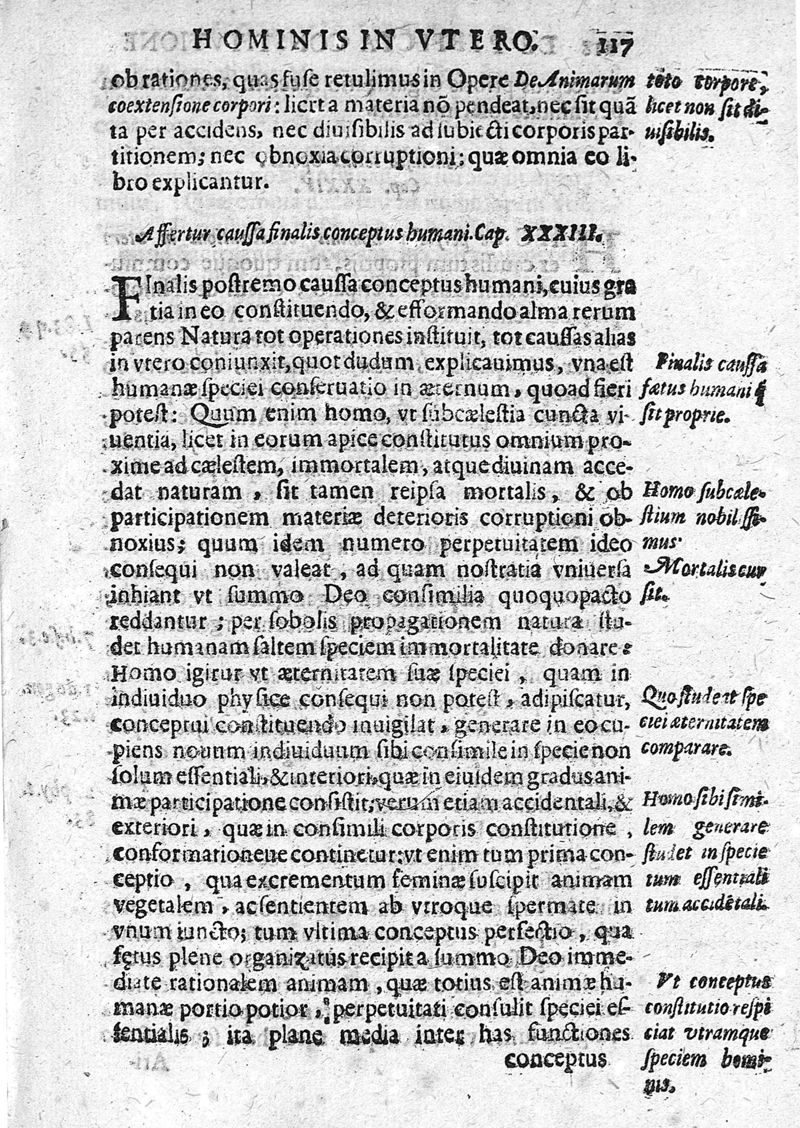 HOMINIS IN VTERO. 117
ob rationes, quas fuse retulimus in Opere De Animarum
coextensione corpori: licet a materia nõ pendeat, nec sit quã
ta per accidens, nec diuisibilis ad subiecti corporis par-
titionem; nec obnoxia corruptioni: quæ omnia eo li-
bro explicantur.
toto corpore,
licet non sit di-
uisibilis.
Affertur caussa finalis conceptus humani. Cap. XXXIII.
FInalis postremo caussa conceptus humani, cuius gra
tia in eo constituendo, & efformando alma rerum
parens Natura tot operationes instituit, tot caussas alias
in vtero coniunxit, quot dudum explicauimus, vna est
humanæ speciei conseruatio in æternum, quoad fieri
potest: Quum enim homo, vt subcælestia cuncta vi-
uentia, licet in eorum apice constitutus omnium pro-
xime ad cælestem, immortalem, atque diuinam acce-
dat naturam, sit tamen reipsa mortalis, & ob
participationem materiæ deterioris corruptioni ob-
noxius; quum idem numero perpetuitatem ideo
consequi non valeat, ad quam nostratia vniuersa
inhiant vt summo Deo consimilia quoquopacto
reddantur; per sobolis propagationem natura stu-
det humanam saltem speciem immortalitate donare:
Homo igitur vt æternitatem suæ speciei, quam in
indiuiduo physice consequi non potest, adipiscatur,
conceptui constituendo inuigilat, generare in eo cu-
piens nouum indiuiduum sibi consimile in specie non
solum essentiali, & interiori, quæ in eiusdem gradus ani-
mæ participatione consistit; verum etiam accidentali, &
exteriori, quæ in consimili corporis constitutione,
conformationeue continetur: vt enim tum prima con-
ceptio, qua excrementum feminæ suscipit animam
vegetalem, ac sentientem ab vtroque spermate in
vnum iuncto; tum vltima conceptus perfectio, qua
fętus plene organizatus recipit a summo Deo imme-
diate rationalem animam, quæ totius est animæ hu-
manæ portio potior, perpetuitati consulit speciei es-
sentialis; ita plane media inter has functiones
conceptus
Finalis caussa
fætus humani q̃
sit proprie.
Homo subcæle-
stium nobilissi-
mus.
Mortalis cur
sit.
Quo studeat spe
ciei æternitatem
comparare.
Homo sibi simi-
lem generare
studet in specie
tum essentiali
tum accidẽtali.
Vt conceptus
constitutio respi
ciat vtramque
speciem homi-
nis.